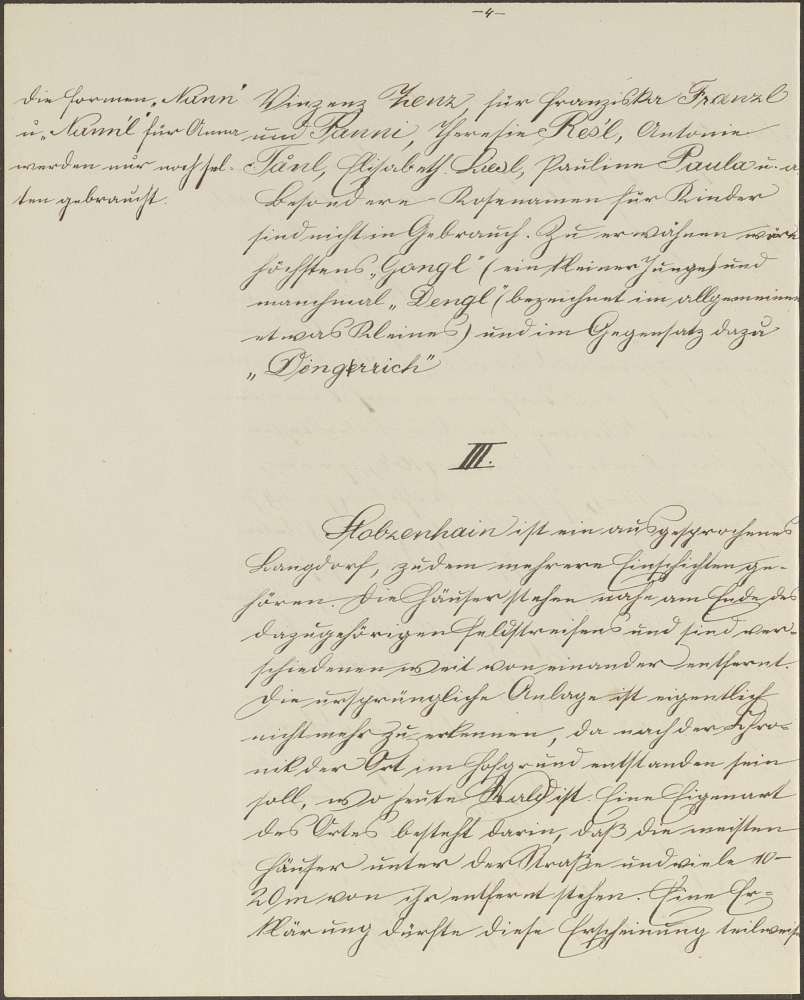 -4-
Die Formen „Nann"
u. „Nann'l" für Anna
werden nur noch sel-
ten gebraucht.
Vinzenz Zenz, für Franziska Franzl
und Fanni, Theresie Res'l, Antonie
Tånl, Elisabeth Liesl, Pauline Paula u. a.
Besondere Kosenamen für Kinder
sind nicht in Gebrauch. Zu erwähnen wäre
höchstens „Gongl" (ein kleiner Junge) und
manchmal „Dengl" (bezeichnet im allgemeinen
etwas Kleines) und im Gegensatz dazu
„Dengerrich"
III.
Stobzenhain ist ein ausgesprochenes
Langdorf, zudem mehrere Einschichten ge-
hören. Die Häuser stehen nahe am Ende des
dazugehörigen Feldstreifens und sind ver-
schiedenen weit von einander entfernt.
Die ursprüngliche Anlage ist eigentlich
nicht mehr zu erkennen, da nach der Chro-
nik der Ort im Hofgrund entstanden sein
soll, wo heute Wald ist. Eine Eigenart
des Ortes besteht darin, daß die meisten
Häuser unter der Straße und viele 10-
20m von ihr entfernt stehen. Eine Er-
klärung dürfte diese Erscheinung teilweise